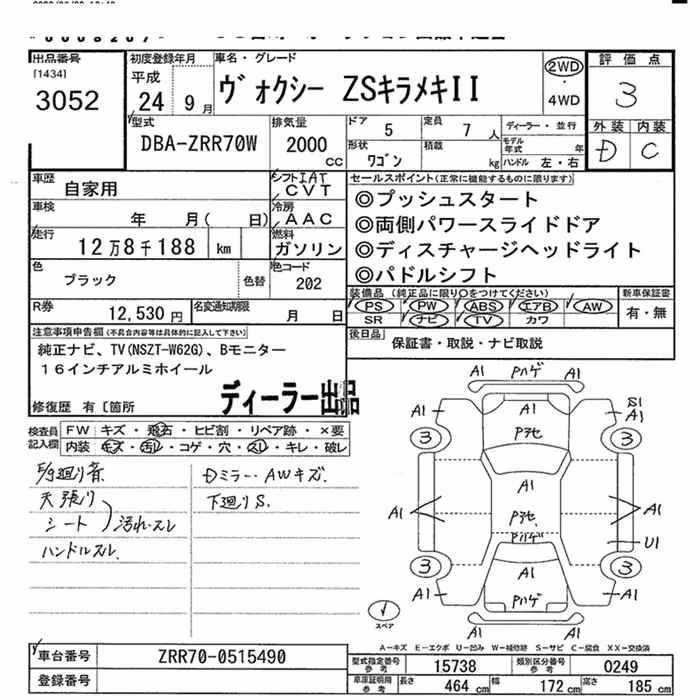 出品番号
[1434]
3052
初度登録年月
平成
24 9月
車名・グレード
ヴォクシー ZSキラメキII
2WD
・
4WD
評価点
3
外装 内装
D C
型式
DBA-ZRR70W
排気量
2000
CC
ドア
5
定員
7 人
形状
ワゴン
積載
kg
ディーラー・並行
モデル年式 年
ハンドル 左・右
車歴
自家用
シフト IAT
CVT
車検
年 月( 日)
冷房
AAC
走行
12万8千188 km
燃料
ガソリン
色
ブラック
色替
色コード
202
R券
12,530 円
名変通知期限
月 日
セールスポイント(正常に機能するものに限ります)
◎プッシュスタート
◎両側パワースライドドア
◎ディスチャージヘッドライト
◎パドルシフト
装備品 (純正品に限り○をつけてください)
PS PW ABS エアB AW
SR ナビ TV カワ
新車保証書
有・無
後日品
保証書・取説・ナビ取説
注意事項申告欄 (不具合内容等は具体的に記入して下さい)
純正ナビ、TV(NSZT-W62G)、Bモニター
16インチアルミホイール
ディーラー出品
修復歴 有 [箇所
検査員
記入欄
FW キズ・飛石・ヒビ割・リペア跡・×要
内装 キズ・汚レ・コゲ・穴・スレ・キレ・破レ
天張り
シート
汚れ・スレ
ハンドルスレ
Dミラー・AWキズ
下廻りS.
A1 Pハゲ A1
A1
S1
A1
3
3
A1
A1
A1
A1
A1
U1
3
3
A1
A1
A1
A1
Pハゲ
スペア
A-キズ E-エクボ U-凹み W-補修跡 S-サビ C-腐食 XX-交換済
車台番号
ZRR70-0515490
登録番号
型式指定番号
参考
15738
類別区分番号
参考
0249
車庫証明用
参考
長さ
464 cm
幅
172 cm
高さ
185 cm